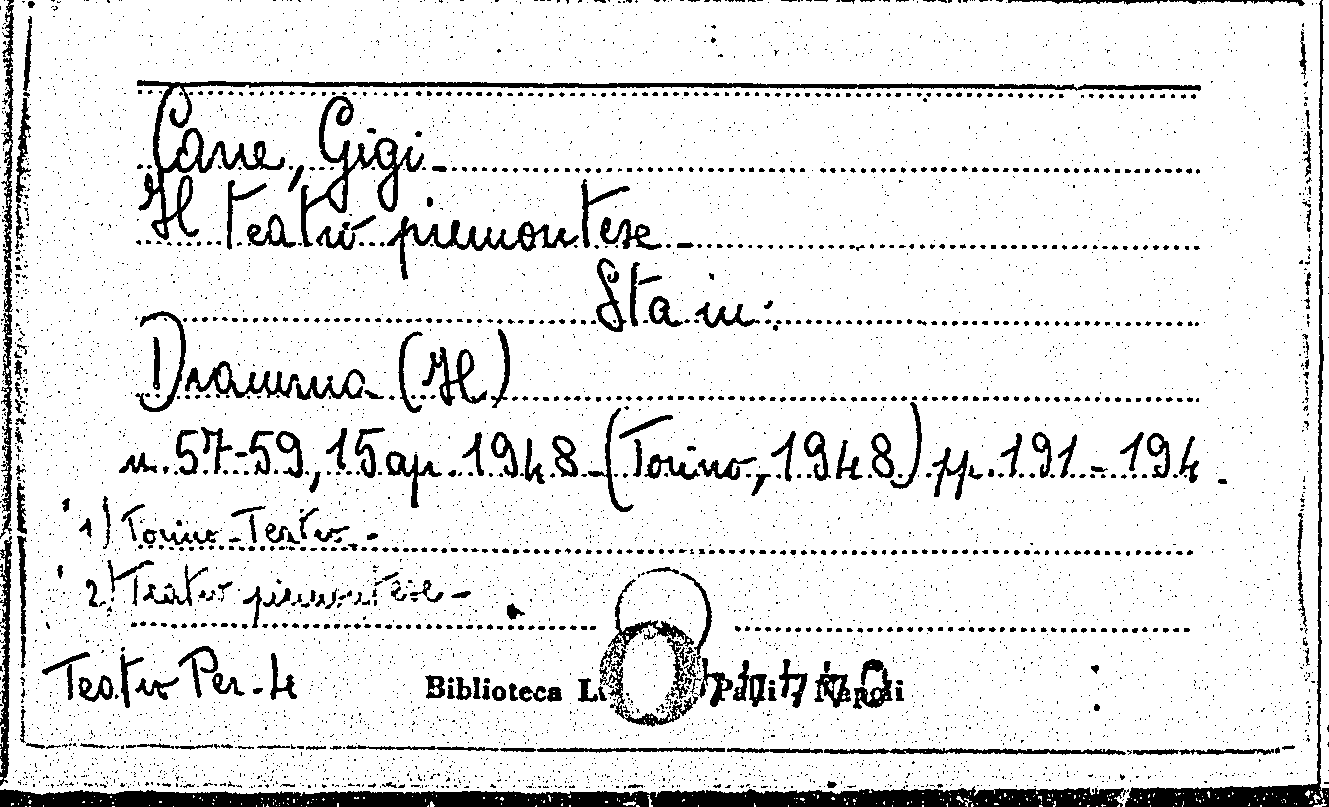 Cane, Gigi.
Il teatro piemontese -
Sta in:
Dramma (Il)
n. 57-59, 15 ap. 1948 - (Torino, 1948) pp. 191 - 194.
1) Torino - Teatro. -
2) Teatro piemontese -
Teatro Per. 4
Biblioteca Napoli